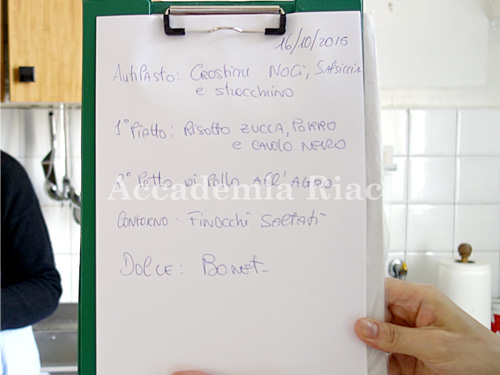 16/10/2015
AntiPasto: Crostini Noci, Salsiccia
e stracchino
1° Piatto: Risotto Zucca, Porro
e Cavolo Nero
2° Petto di Pollo All'Agro
Contorno: Finocchi Saltati
Dolce: Bonet
Accademia Riaci